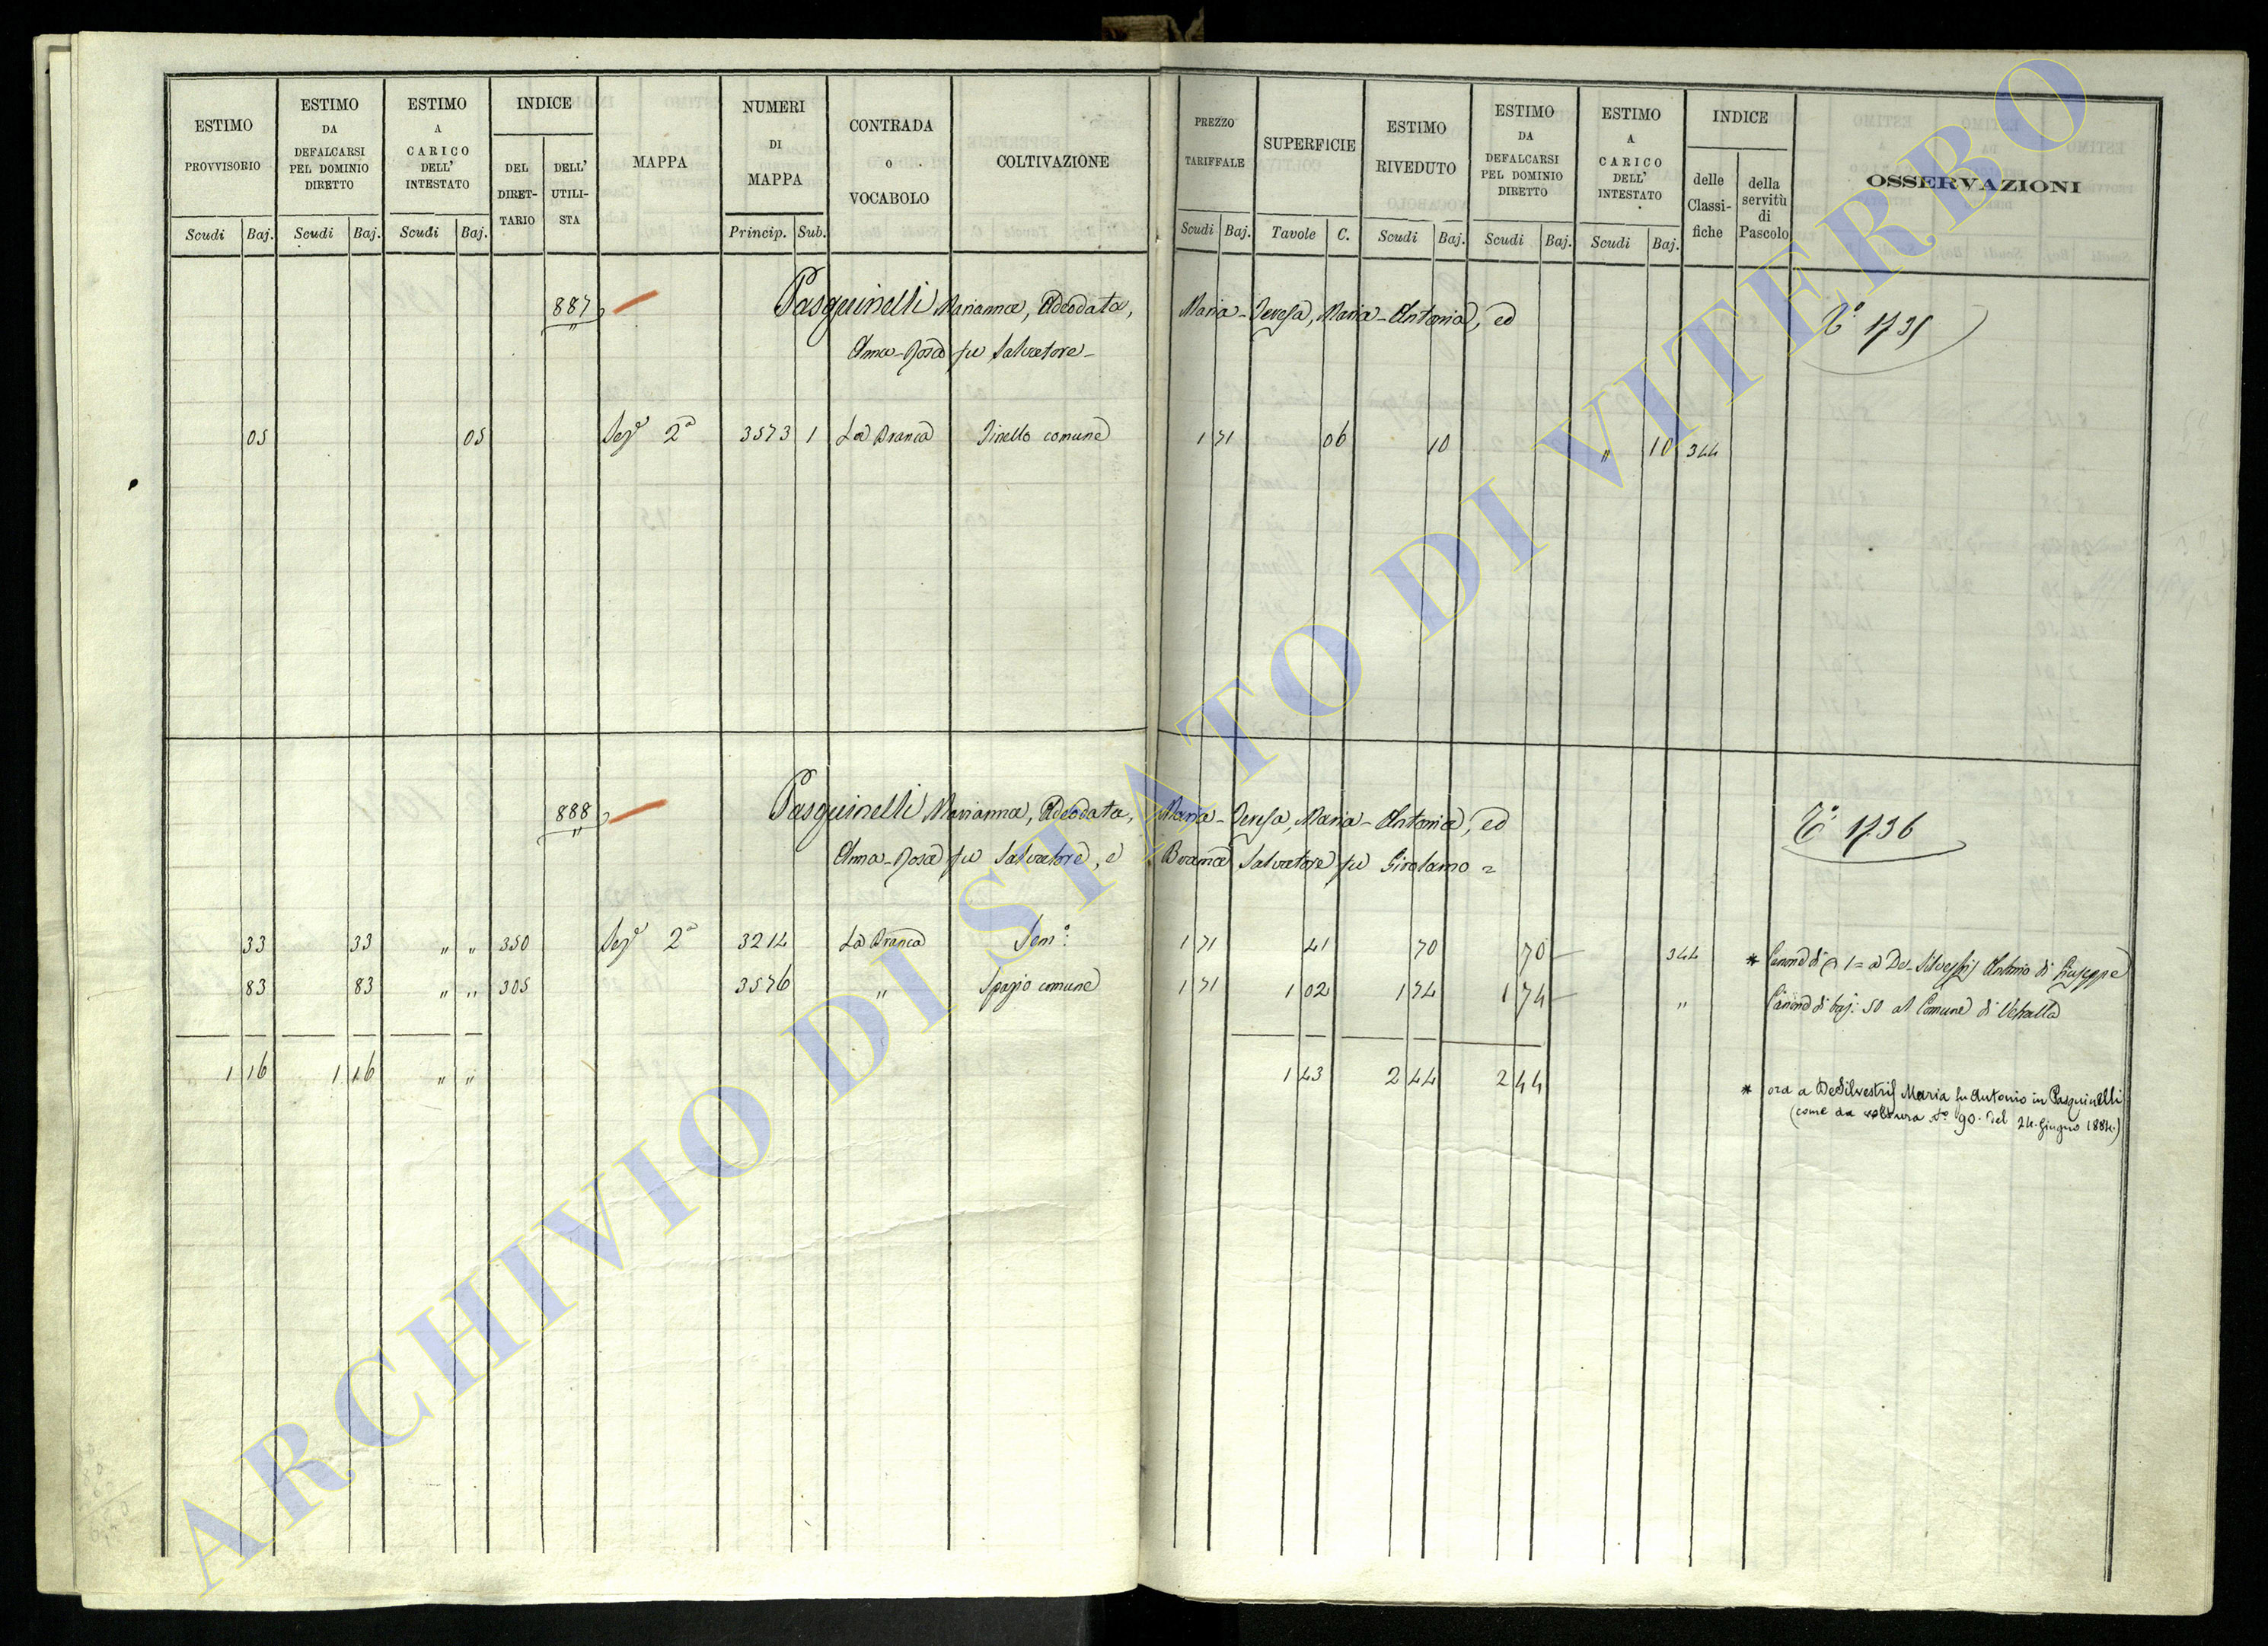 ESTIMO PROVVISORIO
ESTIMO DA DEFALCARSI PEL DOMINIO DIRETTO
ESTIMO A CARICO DELL' INTESTATO
INDICE
DEL DIRETTARIO
DELL' UTILISTA
MAPPA
NUMERI DI MAPPA
CONTRADA O VOCABOLO
COLTIVAZIONE
PREZZO TARIFFALE
SUPERFICIE
ESTIMO RIVEDUTO
ESTIMO DA DEFALCARSI PEL DOMINIO DIRETTO
ESTIMO A CARICO DELL' INTESTATO
INDICE
delle Classifiche
della servitù di Pascolo
OSSERVAZIONI
Scudi Baj. Scudi Baj. Scudi Baj. Princip. Sub. Scudi Baj. Tavole C. Scudi Baj. Scudi Baj. Scudi Baj.
887 Pasquinelli Marianna, Adeodata, Maria-Teresa, Maria-Antonia, ed 1735
Anna-Rosa fu Salvatore-
05 05 Sezᵉ 2ª 3573 1 La Branca Tinello comune 1 71 06 10 " 10 344
888 Pasquinelli Marianna, Adeodata, Maria-Teresa, Maria-Antonia, ed 1736
Anna-Rosa fu Salvatore, e Branca Salvatore fu Girolamo =
33 33 " " 350 Sezᵉ 2ª 3214 La Branca Semᵒ: 1 71 41 70 70 344 * Canone di 1= a De-Silvestris Antonio di Giuseppe
83 83 " " 305 3576 " Spazio comune 1 71 1 02 1 74 1 74 " Canone di baj: 50 al Comune di Vetralla
1 16 1 16 " " 1 43 2 44 2 44
* ora a DeSilvestris Maria fu Antonio in Pasquinelli
(come da voltura Nº 90. del 24. Giugno 1884.)
ARCHIVIO DI STATO DI VITERBO